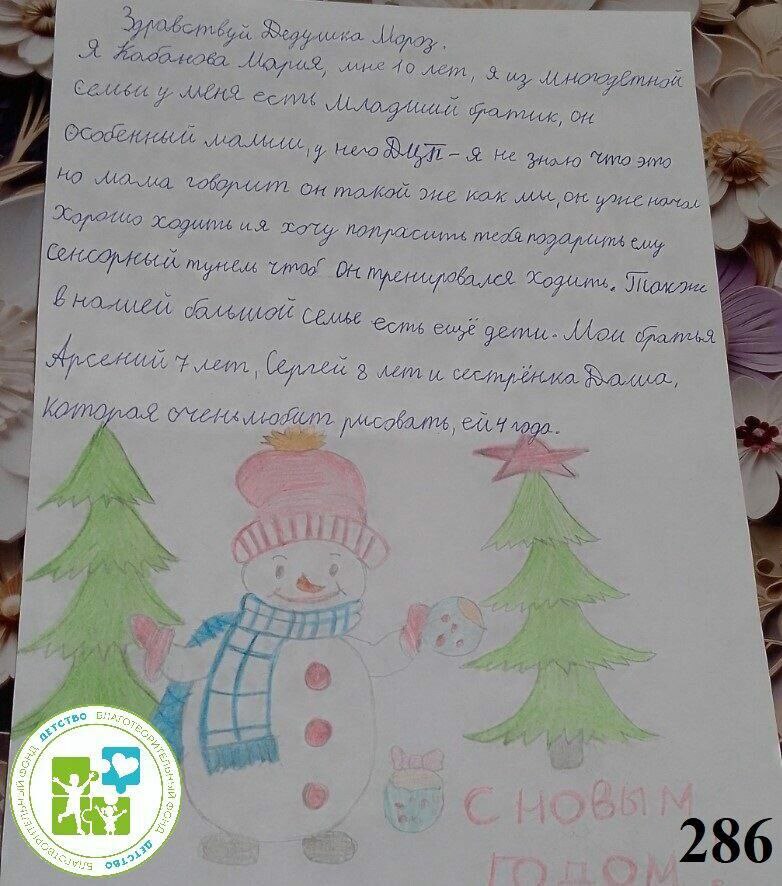 Здравствуй Дедушка Мороз.
Я Кабанова Мария, мне 10 лет, я из многодетной
семьи у меня есть младший братик, он
особенный малыш, у него ДЦП - я не знаю что это
но мама говорит он такой же как мы, он уже начал
хорошо ходить и я хочу попрасить тебя подарить ему
сенсорный тунель чтоб он тренировался ходить. Также
в нашей большой семье есть ещё дети. Мои братья
Арсений 7 лет, Сергей 8 лет и сестрёнка Даша,
которая очень любит рисовать, ей 4 года.
С НОВЫМ
ГОДОМ.
БЛАГОТВОРИТЕЛЬНЫЙ ФОНД ДЕТСТВО
БЛАГОТВОРИТЕЛЬНЫЙ ФОНД ДЕТСТВО
286